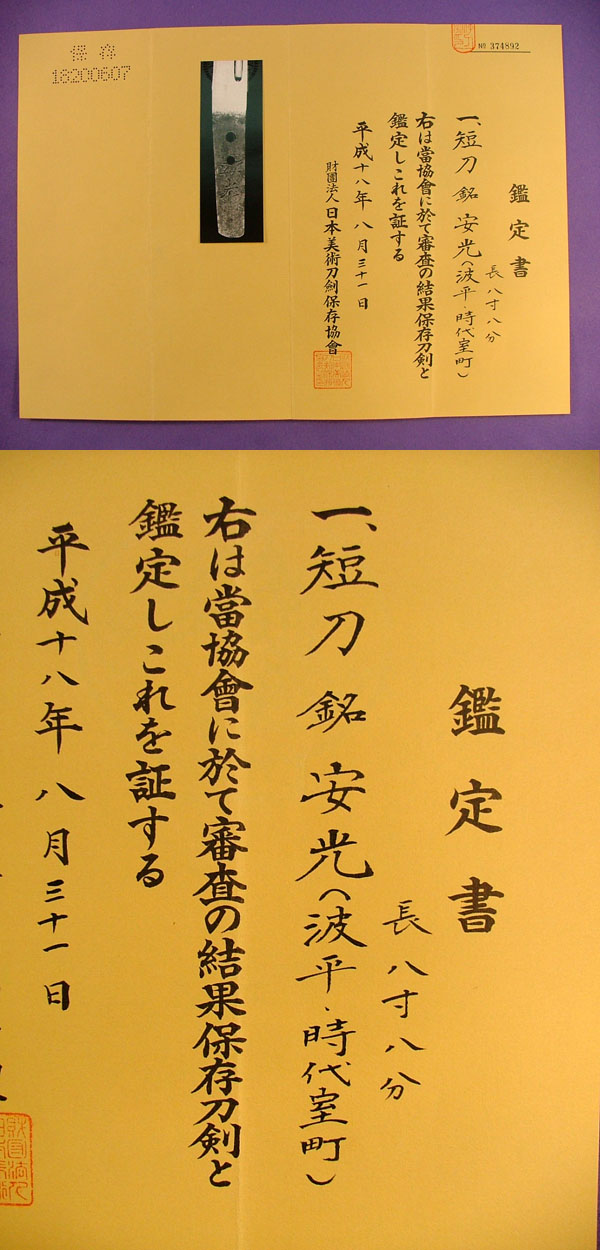 保存
18200607
№ 374892
鑑定書
長八寸八分
一、短刀 銘 安光(波平・時代室町)
右は當協會に於て審査の結果保存刀剣と
鑑定しこれを証する
平成十八年八月三十一日
財團法人日本美術刀劍保存協會
鑑定書
長八寸八分
一、短刀 銘 安光(波平・時代室町)
右は當協會に於て審査の結果保存刀剣と
鑑定しこれを証する
平成十八年八月三十一日